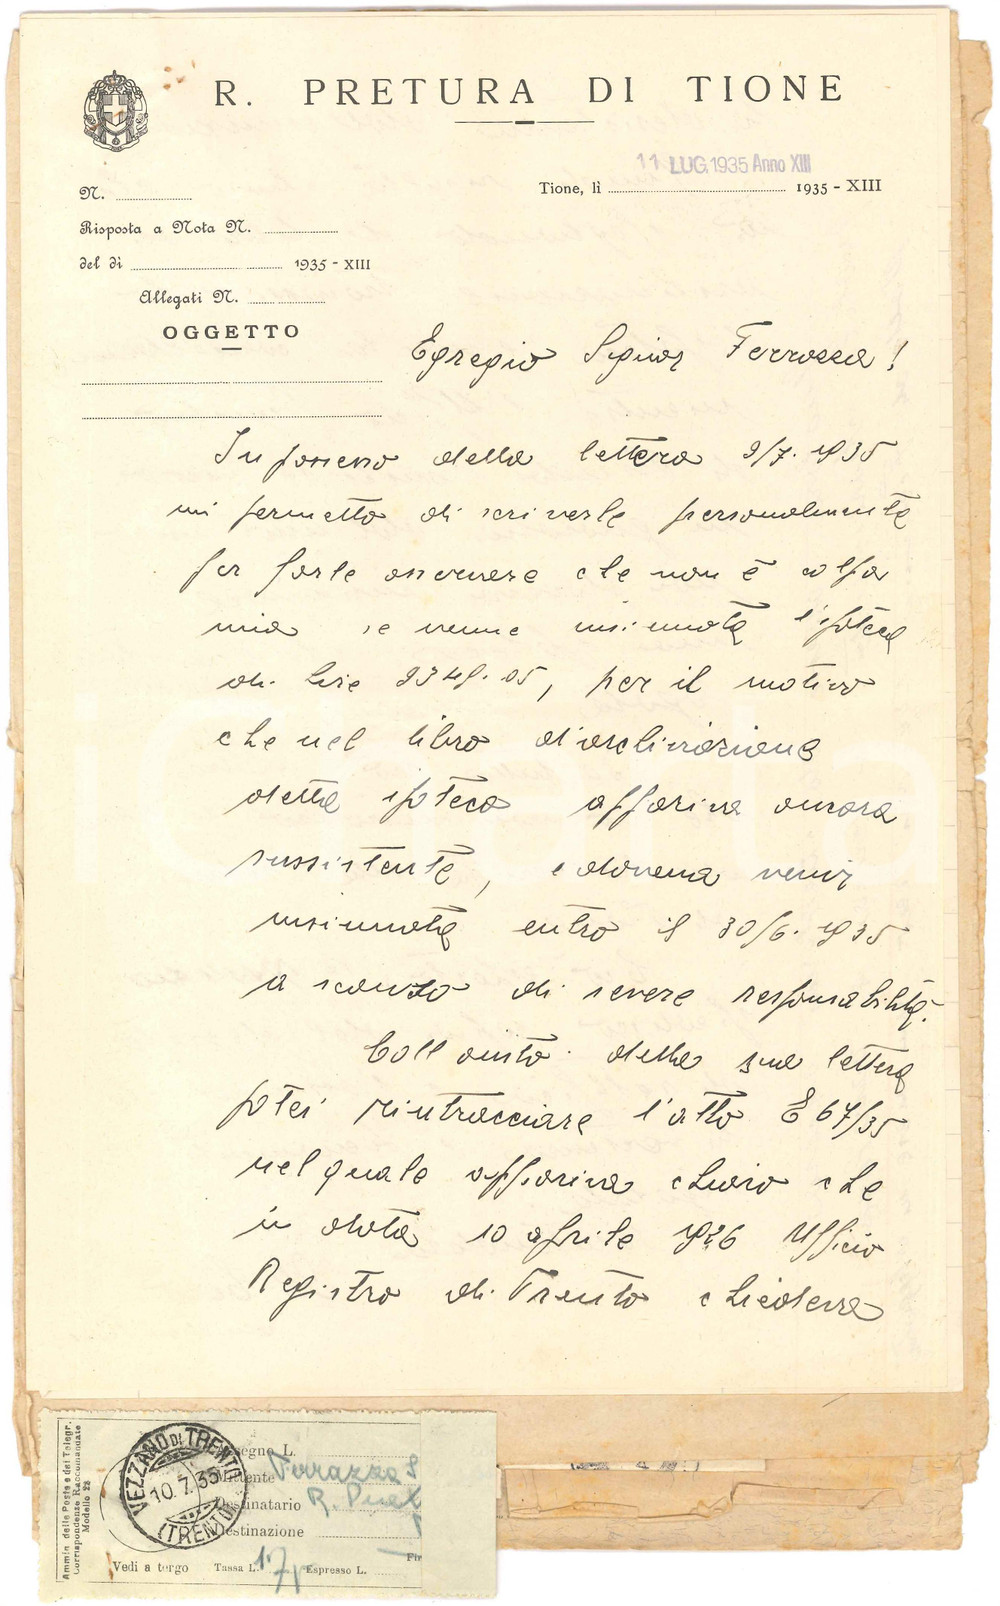 R. PRETURA DI TIONE
11 LUG. 1935 Anno XIII
Tione, lì 1935 - XIII
N.
Risposta a Nota N.
del dì 1935 - XIII
Allegati N.
OGGETTO
Egregio Signor Terrazza!
In possesso della lettera 9/7. 1935
mi permetto di scriverle personalmente
per farle osservare che non è colpa
mia se venne insinuata l'ipoteca
di lire 2349.05, per il motivo
che nel libro d'archiviazione
detta ipoteca appariva ancora
sussistente, e doveva venir
insinuata entro il 30/6. 1935
a scanso di severe responsabilità.
Coll'aiuto della sua lettera
potei rintracciare l'atto E 67/35
nel quale appariva chiaro che
in data 10 aprile 1926 Ufficio
Registro di Trento chiedeva
Ammin. delle Poste e dei Telegr.
Corrispondenze Raccomandate
Modello 28
VEZZANO DI TRENTO
10.7.35
(TRENTO)
Assegno L.
Mittente Terrazza S
Destinatario R. Pret
Destinazione
Vedi a tergo Tassa L. Espresso L.